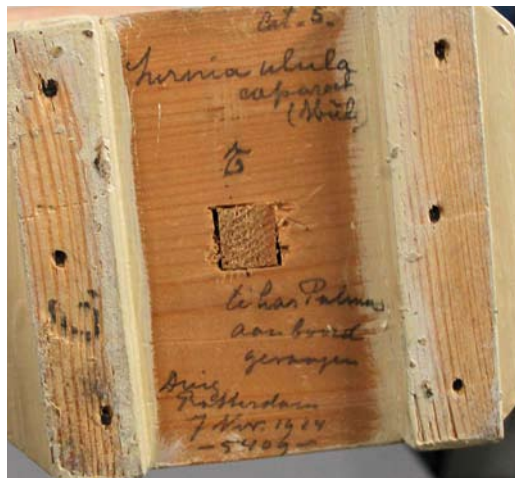 Cat. 5.
Surnia ulula
caparoch
(Müll)
te Las Palmas
aan boord
gevangen
Dierg.
Rotterdam
7 Nov. 1924
-5409-